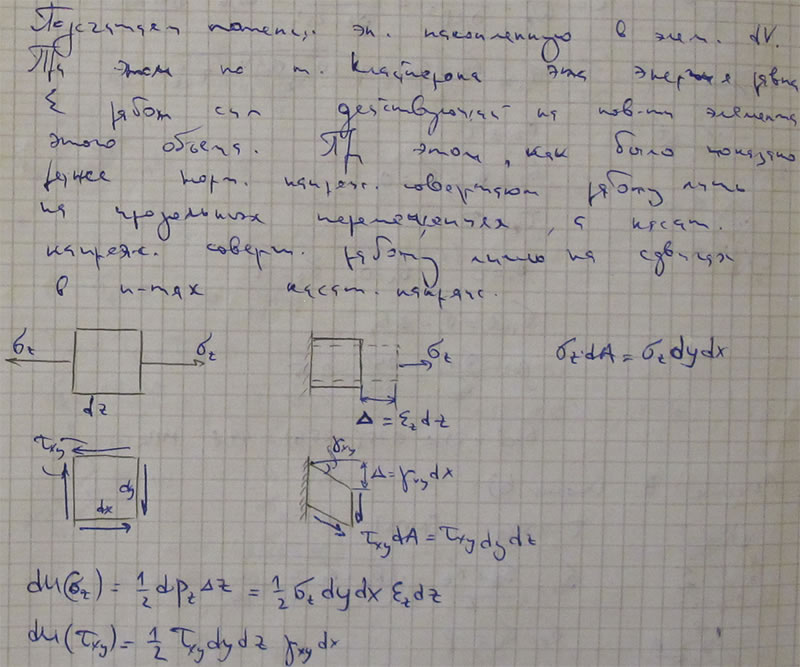 Подсчитаем потенц. эн. накопленную в элем. dV.
При этом по т. Клайперона эта энергия равна
Σ работ сил действующей на пов-ти элемента
этого объема. При этом, как было показано
ранее норм. напряж. совершают работу лишь
на продольных перемещениях, а касат.
напряж. соверш. работу лишь на сдвигах
в п-тях касат. напряж.
σz σz σz σz·dA = σz dydx
dz Δ = εz dz
τxy γxy
dy Δ = γxy dx
dx
τxy dA = τxy dy dz
du(σz) = 1/2 dPz Δz = 1/2 σz dydx εz dz
du(τxy) = 1/2 τxy dy dz γxy dx